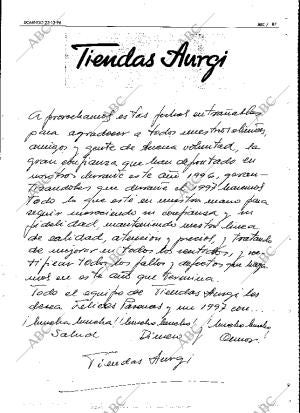 DOMINGO 22-12-96 ABC / 87
Tiendas Aurgi
Aprovechamos estas fechas entrañables
para agradecer a todos nuestros clientes,
amigos y gente de buena voluntad, la
gran confianza que han depositado en
nosotros durante este año 1996, garan-
tizandoles que durante el 1997 haremos
todo lo que este en nuestra mano para
seguir mereciendo su confianza y su
fidelidad, manteniendo nuestra linea
de calidad, atencion y precios, y tratando
de mejorar en todos los sentidos, y no
repetir todos los fallos y defectos que
mos en este año que termina.
Todo el equipo de Tiendas Aurgi les
desea Felices Pascuas, y un 1997 con...
¡Mucha Mucha! ¡Mucho Mucho! ¡Mucho Mucho
Salud Dinero y Amor!
Tiendas Aurgi